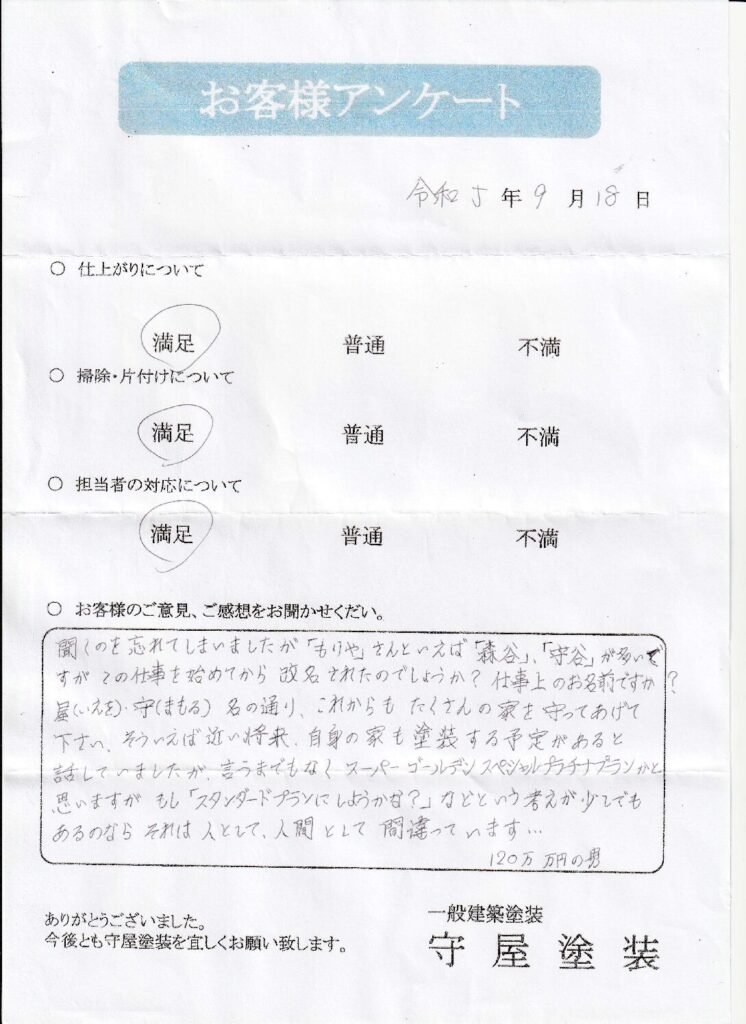 お客様アンケート
令和5年9月18日
○ 仕上がりについて
満足 普通 不満
○ 掃除・片付けについて
満足 普通 不満
○ 担当者の対応について
満足 普通 不満
○ お客様のご意見、ご感想をお聞かせくだい。
聞くのを忘れてしまいましたが「もりや」さんといえば「森谷」、「守谷」が多いで
すが この仕事を始めてから 改名されたのでしょうか? 仕事上のお名前ですか?
屋(いえを)・守(まもる) 名の通り、これからも たくさんの 家を 守ってあげて
下さい、そういえば近い将来、自身の家も塗装する予定があると
話していましたが、言うまでもなく スーパー ゴールデン スペシャルプラチナプランかと
思いますが もし「スタンダードプランにしようかな?」などという考えが少しでも
あるのなら それは 人として、人間 として 間違っています…
120万 万円の男
ありがとうございました。
今後とも守屋塗装を宜しくお願い致します。
一般建築塗装
守屋塗装